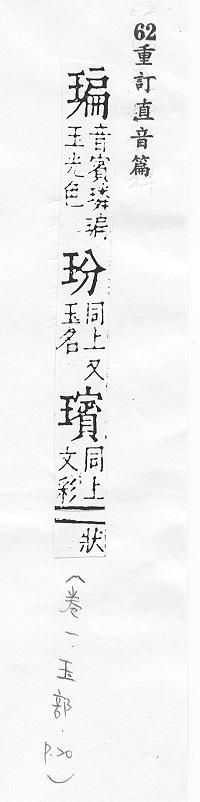 62重訂直音篇
㻞音賓璘㻞玉光色玢同上又玉名璸同上文彩狀
(卷一.玉部.p.20)